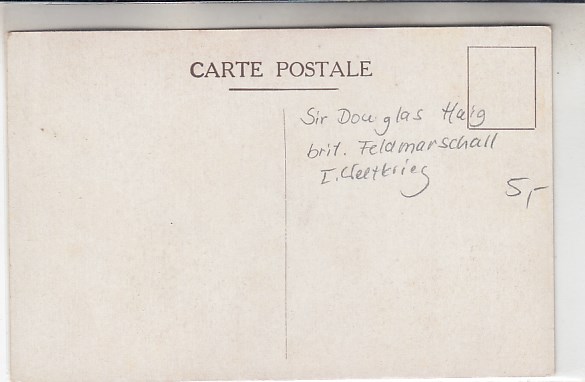 CARTE POSTALE
Sir Douglas Haig
brit. Feldmarschall
I. Weltkrieg
5,-